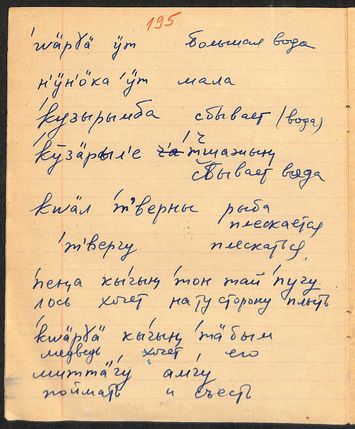 195
'wäрɣä ӱт большая вода
н'ӱн'öка 'ӱт мала
'кузырымба сбывает (вода)
'кӯзäрыл'е 'тшажың
сбывает вода
кwäл 'т'верны рыба
плескается
'т'вергу плескаться
'пеңа кы'гың 'тон тай 'пӯгу
лось хочет на ту сторону плыть
'кwäрɣä кы'гың 'тäбым
медведь хочет его
муттä'гу ам'гу
поймать и съесть